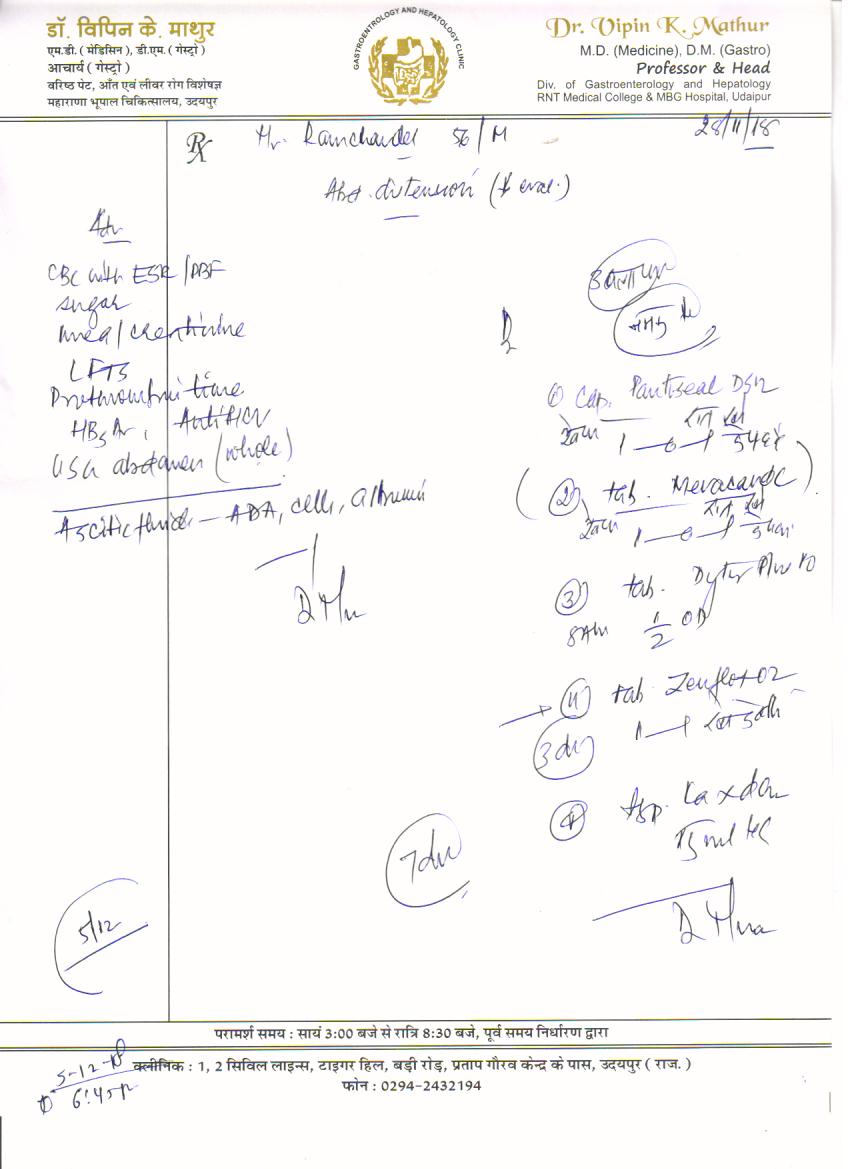 डॉ. विपिन के. माथुर
एम.डी. ( मेडिसिन ), डी.एम. ( गेस्ट्रो )
आचार्य ( गेस्ट्रो )
वरिष्ठ पेट, आँत एवं लीवर रोग विशेषज्ञ
महाराणा भूपाल चिकित्सालय, उदयपुर
GASTROENTEROLOGY AND HEPATOLOGY CLINIC
Dr. Vipin K. Mathur
M.D. (Medicine), D.M. (Gastro)
Professor & Head
Div. of Gastroenterology and Hepatology
RNT Medical College & MBG Hospital, Udaipur
Rx Mr. Ramchander 56/M 28/11/18
Abd. distension
Adv
CBC with ESR/PBF
sugar
urea/creatinine
LFTS
Prothrombin time
HBsAg, AntiHCV
USG abdomen (whole)
Ascitic fluid — ADA, cells, albumin
① Cap. DSR
1—0—1
② tab.
1—0—1
③ tab. Dytor Plus 10
8AM 1/2 OD
④ tab. Zenflox OZ
1—1
④
7
5/12
परामर्श समय : सायं 3:00 बजे से रात्रि 8:30 बजे, पूर्व समय निर्धारण द्वारा
क्लीनिक : 1, 2 सिविल लाइन्स, टाइगर हिल, बड़ी रोड़, प्रताप गौरव केन्द्र के पास, उदयपुर ( राज. )
फोन : 0294-2432194
5-12-18
6:45